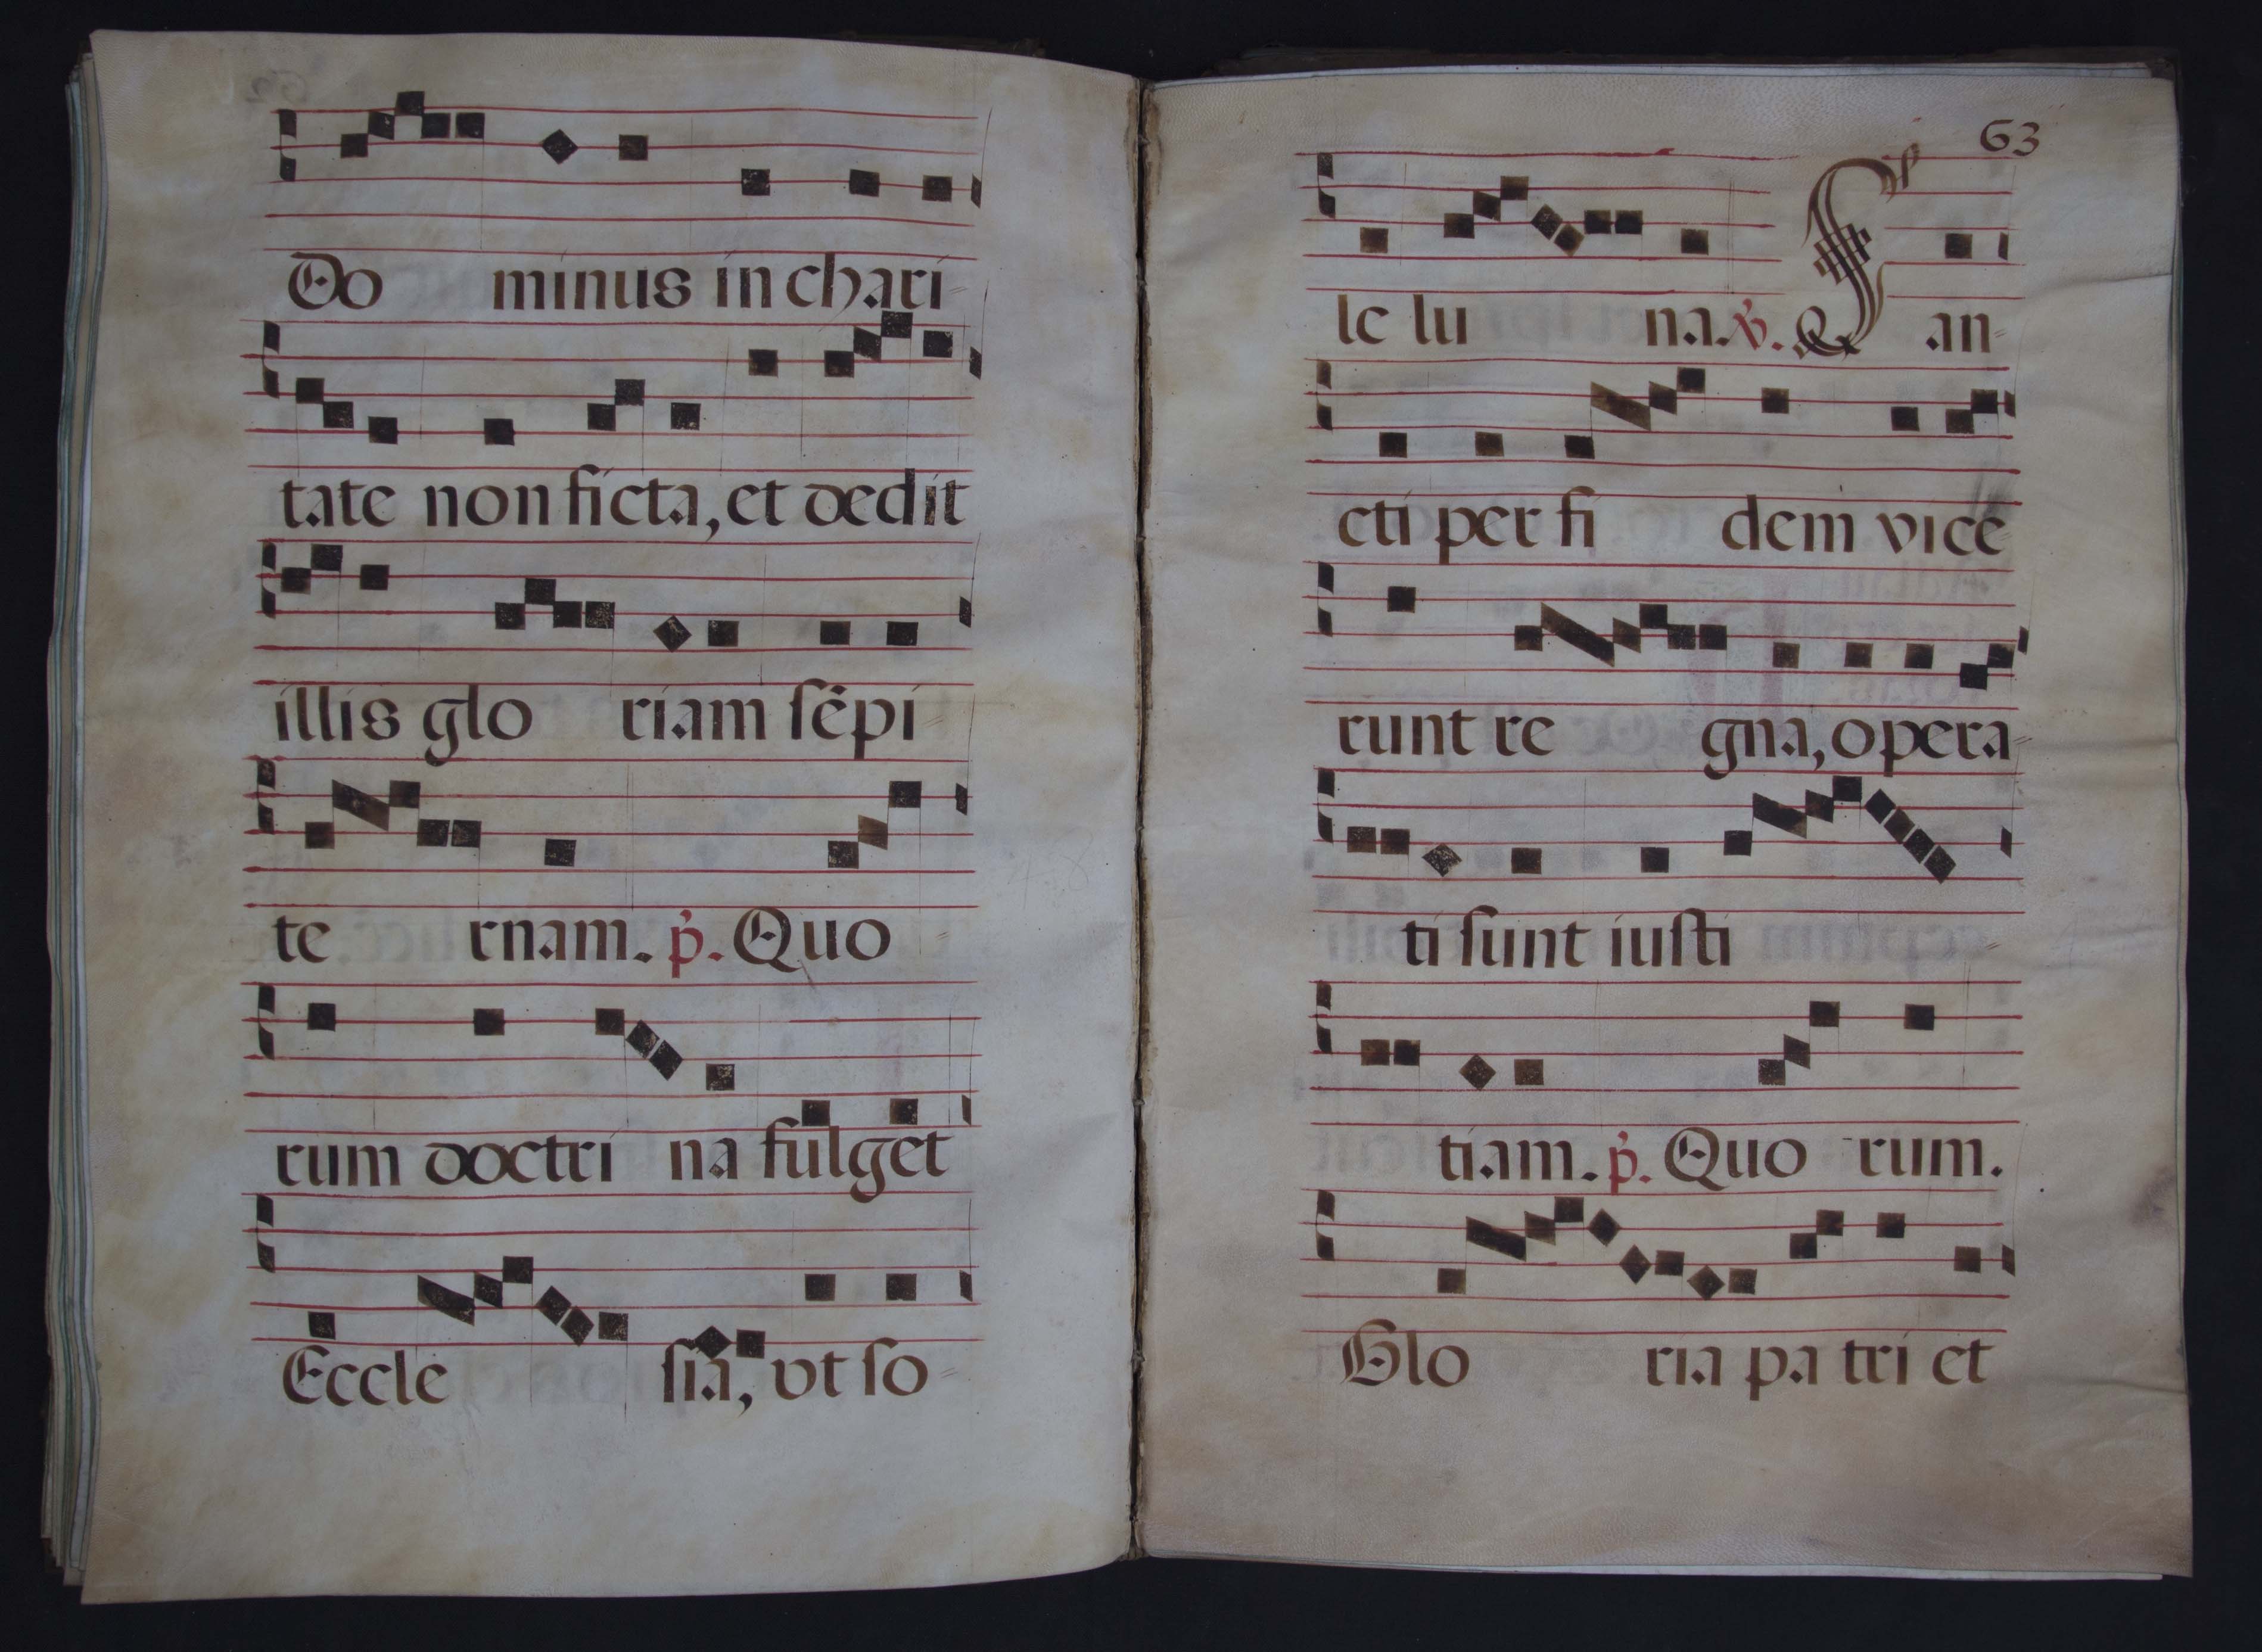 Do minus in chari
tate non ficta, et dedit
illis glo riam sẽpi
te rnam. p̃. Quo
rum doctri na fulget
Eccle sia, vt so
63
le lu ua. ℣. San
cti per fi dem vice
runt re gna, opera
ti sunt iusti
tiam. p̃. Quo rum.
Glo ria pa tri et